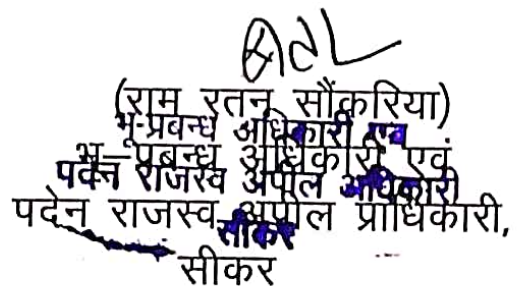 (राम रतन सौंकरिया)
भू-प्रबन्ध अधिकारी एवं
भू-प्रबन्ध अधिकारी एवं
पदेन राजस्व अपील अधिकारी
पदेन राजस्व अपील प्राधिकारी,
सीकर
सीकर